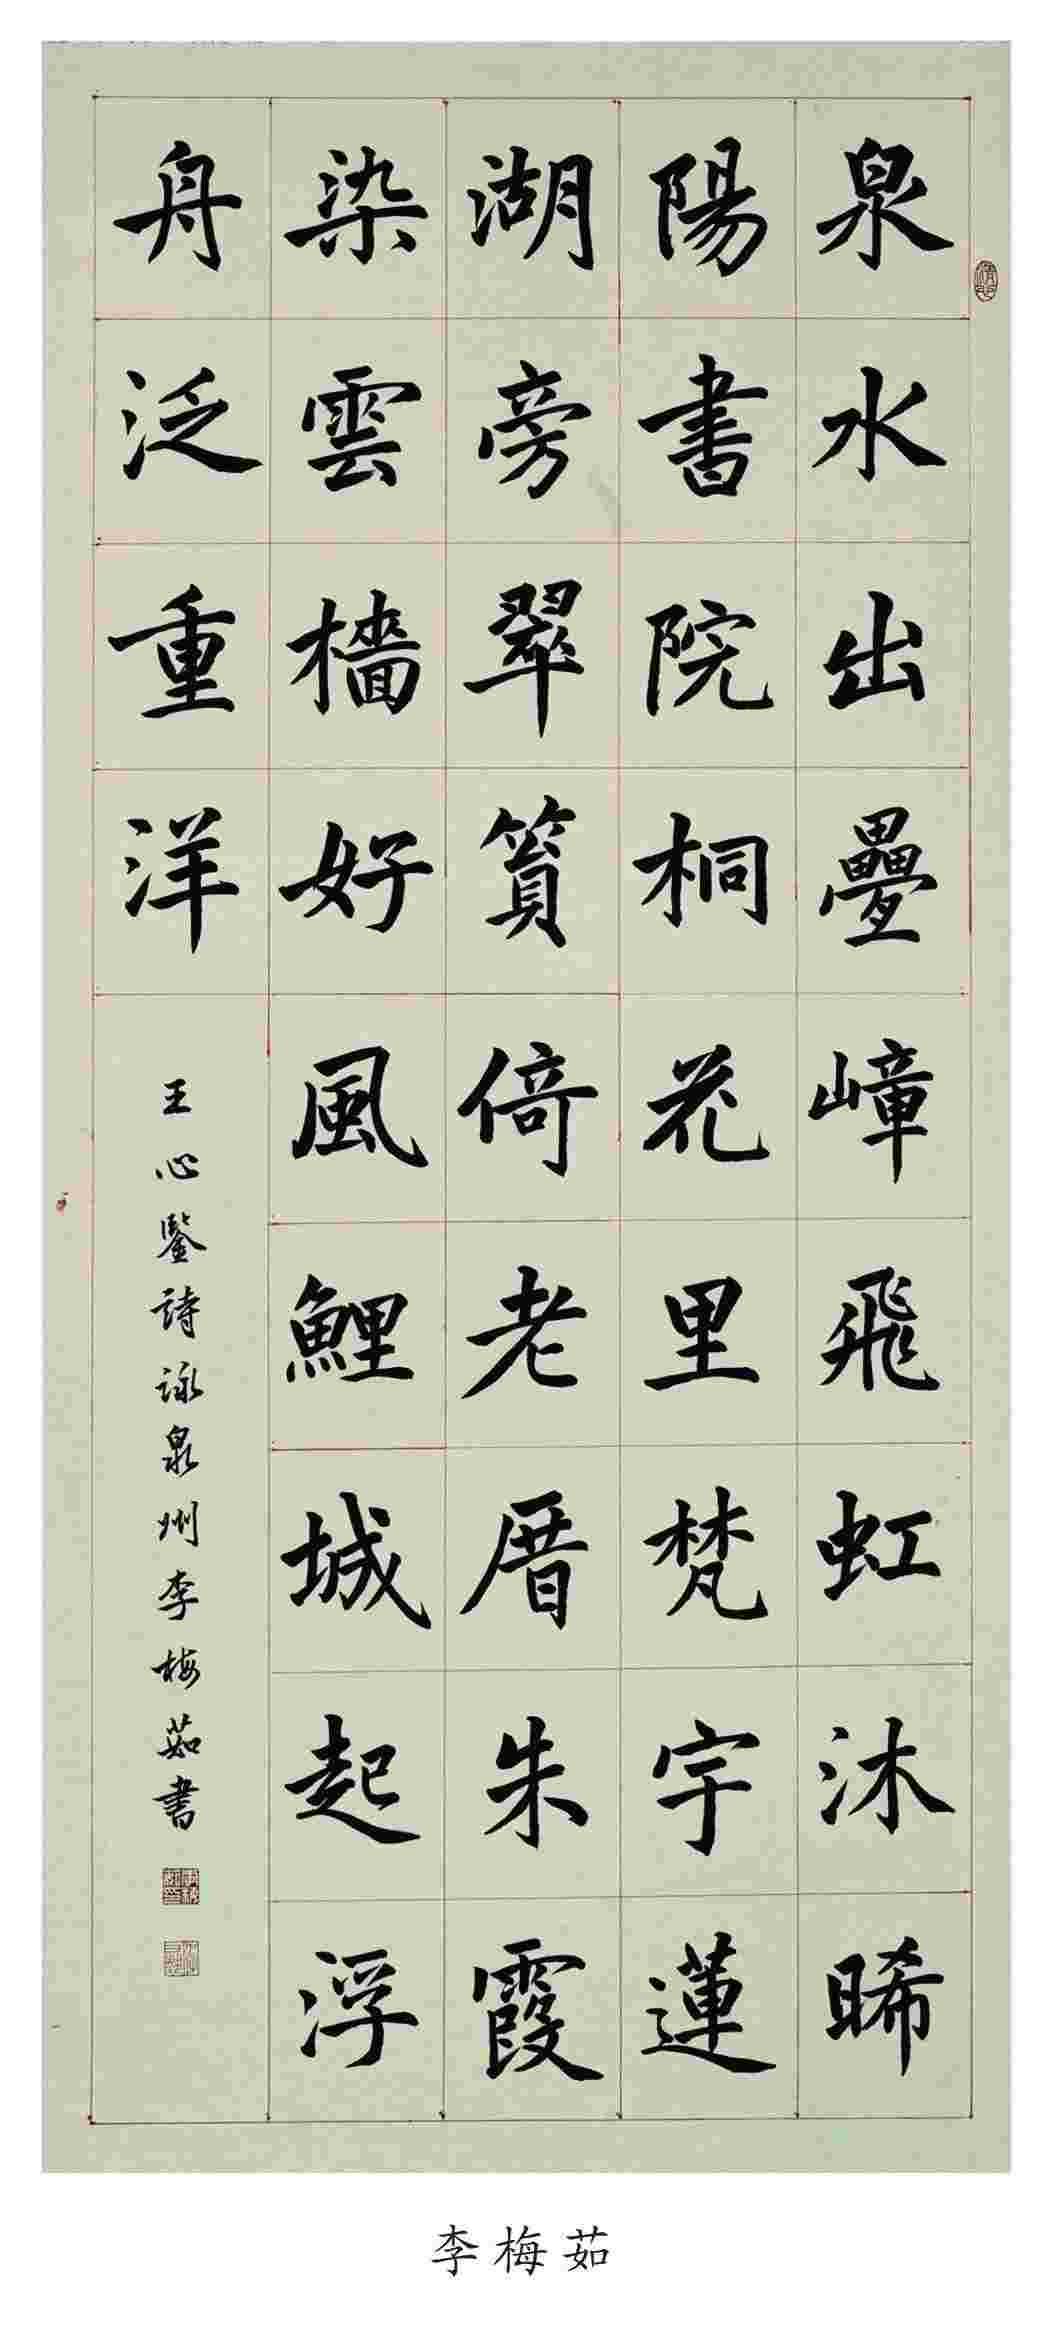 泉水出疊嶂飛虹沐晞
陽書院桐花里梵宇蓮
湖旁翠篔倚老厝朱霞
染雲檣好風鯉城起浮
舟泛重洋
王心鑒詩詠泉州李梅茹書
李梅茹